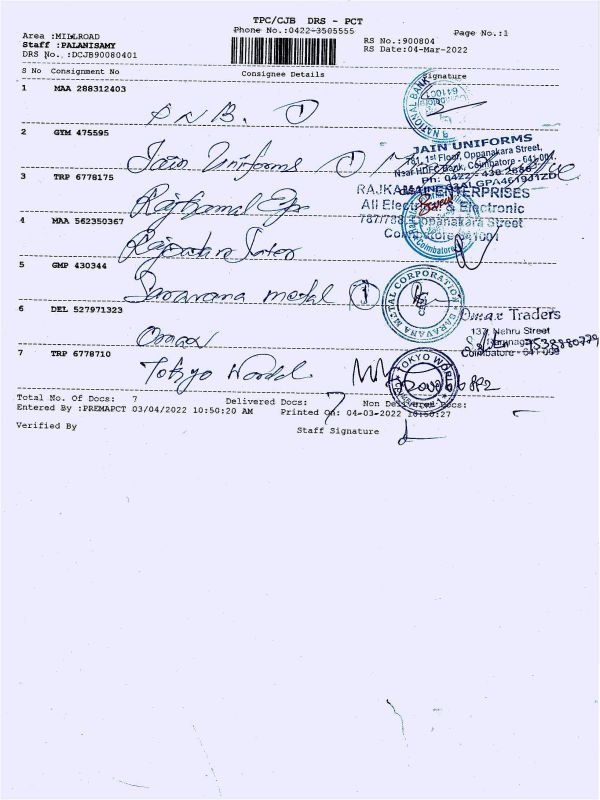 TPC/CJB DRS - PCT
Phone No.:0422-3505555
Page No.:1
Area :MILLROAD
Staff :PALANISAMY
DRS No.:DCJB90080401
RS No.:900804
RS Date:04-Mar-2022
S No Consignment No Consignee Details Signature
1 MAA 288312403
P N B. 1
NATIONAL BANK
2 GTM 475595
Jain Uniforms 1
JAIN UNIFORMS
781, 1st Floor, Oppanakara Street,
Near HDFC Bank, Coimbatore - 641 001.
3 TRP 6778175
Rajkamal
RAJKAMAL ENTERPRISES
All Electrical & Electronic
787/788, Oppanakara Street
Coimbatore 641001
4 MAA 562350367
Coimbatore
5 GMP 430344
Saravana metal 1
SARAVANA METAL CORPORATION
6 DEL 527971323
Omax
Omax Traders
137, Nehru Street
Ramnagar
Coimbatore - 641 009
7 TRP 6778710
Tokyo World
TOKYO WORLD
Total No. Of Docs: 7 Delivered Docs: 7 Non Delivered Docs:
Entered By :PREMAPCT 03/04/2022 10:50:20 AM Printed On: 04-03-2022 10:50:27
Verified By Staff Signature